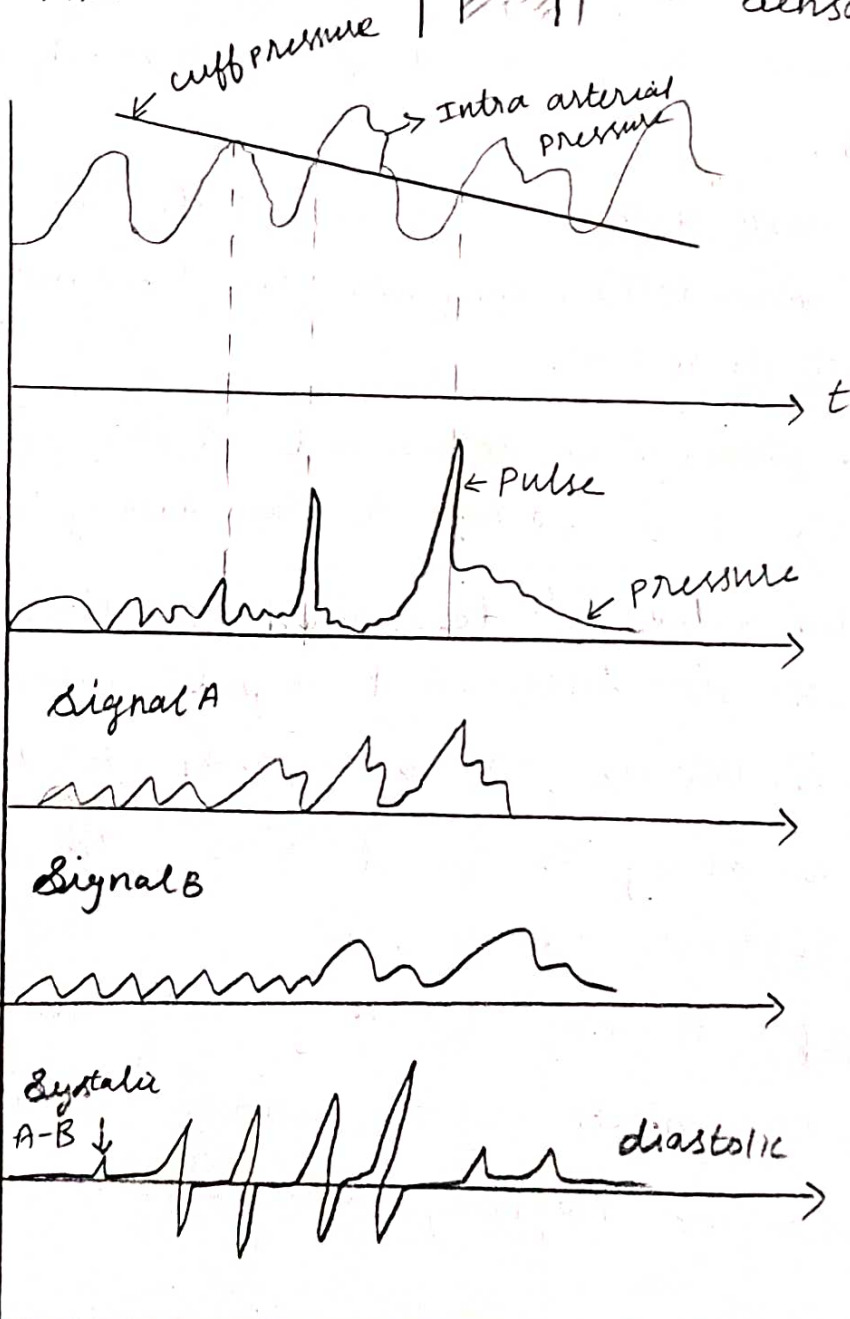 cuff pressure
Intra arterial
pressure
t
Pulse
pressure
Signal A
Signal B
Systolic
A-B
diastolic